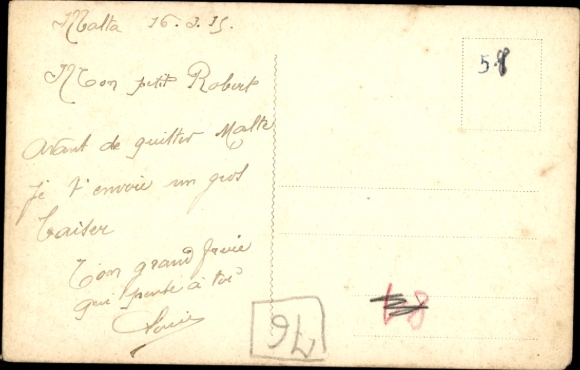 Malta 16.3.15.
Mon petit Robert
Avant de quitter Malte
je t'envoie un gros
baiser
Ton grand frère
qui pense à toi
Louis
58
76
68